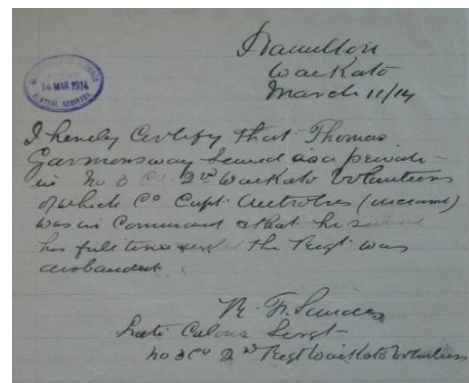 Hamilton
Waikato
March 11/14
14 MAR 1914
I hereby Certify that Thomas
Garmonsway Served as a private
in No 3 Co 2nd Waikato Volunteers
of which Co Capt (
was in Command & that he served
his full time the Regt was
disbanded
Late Colour Sergt
No 3 Co 2nd Regt Waikato Volunteers